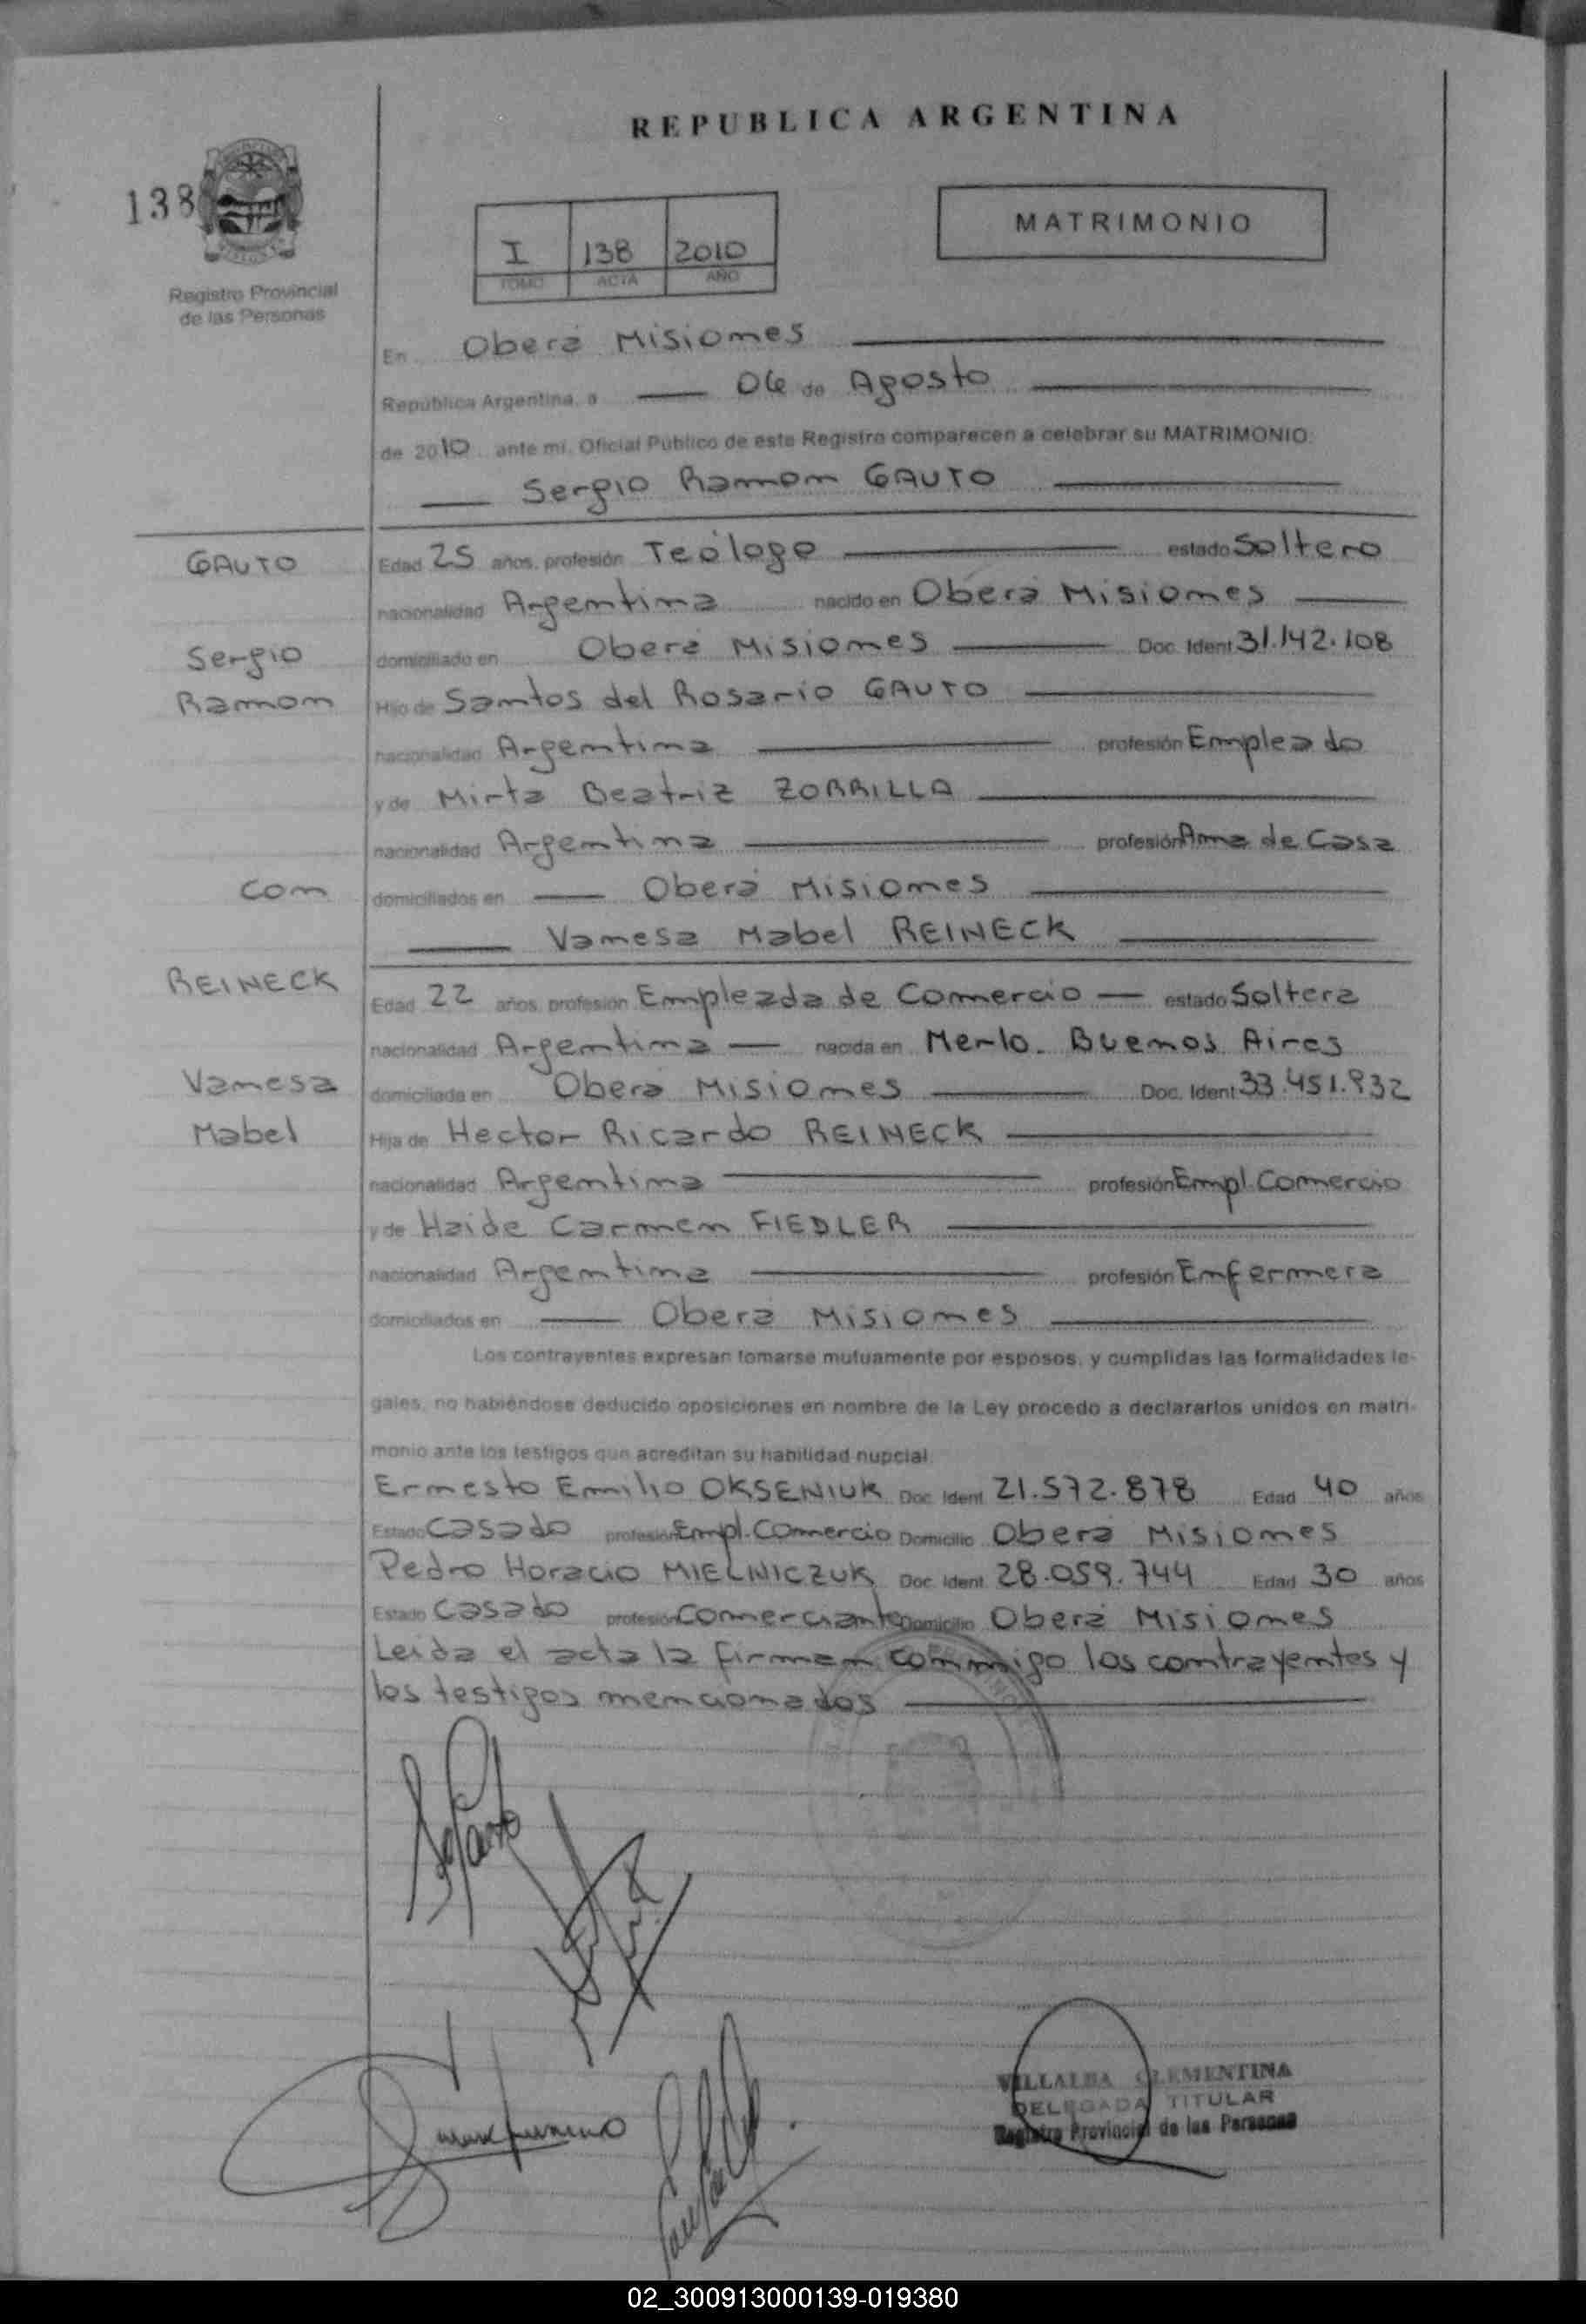 REPUBLICA ARGENTINA
138
MATRIMONIO
I 138 2010
TOMO ACTA AÑO
Registro Provincial
de las Personas
En Oberá Misiones
República Argentina, a 06 de Agosto
de 2010 ante mi, Oficial Público de este Registro comparecen a celebrar su MATRIMONIO:
Sergio Ramon GAUTO
GAUTO
Edad 25 años, profesión Teólogo estado Soltero
nacionalidad Argentina nacido en Oberá Misiones
Sergio
domiciliado en Oberá Misiones Doc. Ident 31.142.108
Ramon
Hijo de Santos del Rosario GAUTO
nacionalidad Argentina profesión Empleado
y de Mirta Beatriz ZORRILLA
nacionalidad Argentina profesión Ama de Casa
Con
domiciliados en Oberá Misiones
Vanesa Mabel REINECK
REINECK
Edad 22 años, profesión Empleada de Comercio estado Soltera
nacionalidad Argentina nacida en Merlo. Buenos Aires
Vanesa
domiciliada en Oberá Misiones Doc. Ident 33.451.932
Mabel
Hija de Hector Ricardo REINECK
nacionalidad Argentina profesión Empl. Comercio
y de Haide Carmen FIEDLER
nacionalidad Argentina profesión Enfermera
domiciliados en Oberá Misiones
Los contrayentes expresan tomarse mutuamente por esposos, y cumplidas las formalidades le-
gales, no habiéndose deducido oposiciones en nombre de la Ley procedo a declararlos unidos en matri-
monio ante los testigos que acreditan su habilidad nupcial.
Ernesto Emilio OKSENIUK Doc. Ident. 21.572.878 Edad 40 años
Estado Casado profesión Empl. Comercio Domicilio Oberá Misiones
Pedro Horacio MIELNICZUK Doc. Ident. 28.059.744 Edad 30 años
Estado Casado profesión Comerciante Domicilio Oberá Misiones
Leida el acta la firman conmigo los contrayentes y
los testigos mencionados
VILLALBA CLEMENTINA
DELEGADA TITULAR
Registro Provincial de las Personas
02_300913000139-019380